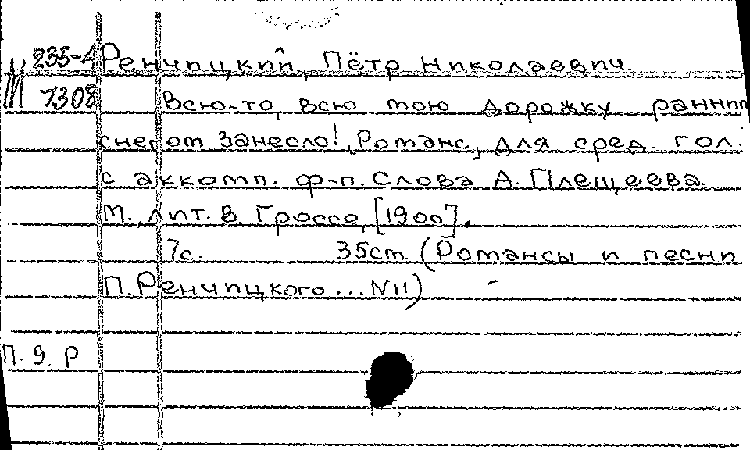 235-4 Ренчицкий, Пётр Николаевич
1308 Всю-то, всю мою дорожку ранним
снегом занесло! Романс, для сред. гол.
с аккомп. ф-п. Слова А. Плещеева.
М., лит. В. Гроссе, [1900].
7с. 35см (Романсы и песни
П. Ренчицкого... №11)
П. 9. Р